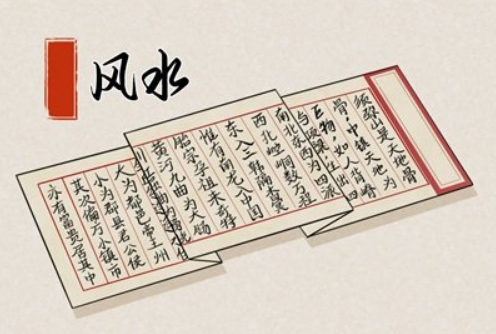 风水
须弥山是天地骨
骨中镇天地为
巨物如人背脊
与生出四
南北东西为四派
西北崆峒数万程
东入三韩隔杳冥
惟有南龙入中国
胎宗孕祖来奇特
黄河九曲为大肠
大为都邑帝王州
小为郡县君公侯
其次偏方小镇市
亦有富贵居其中